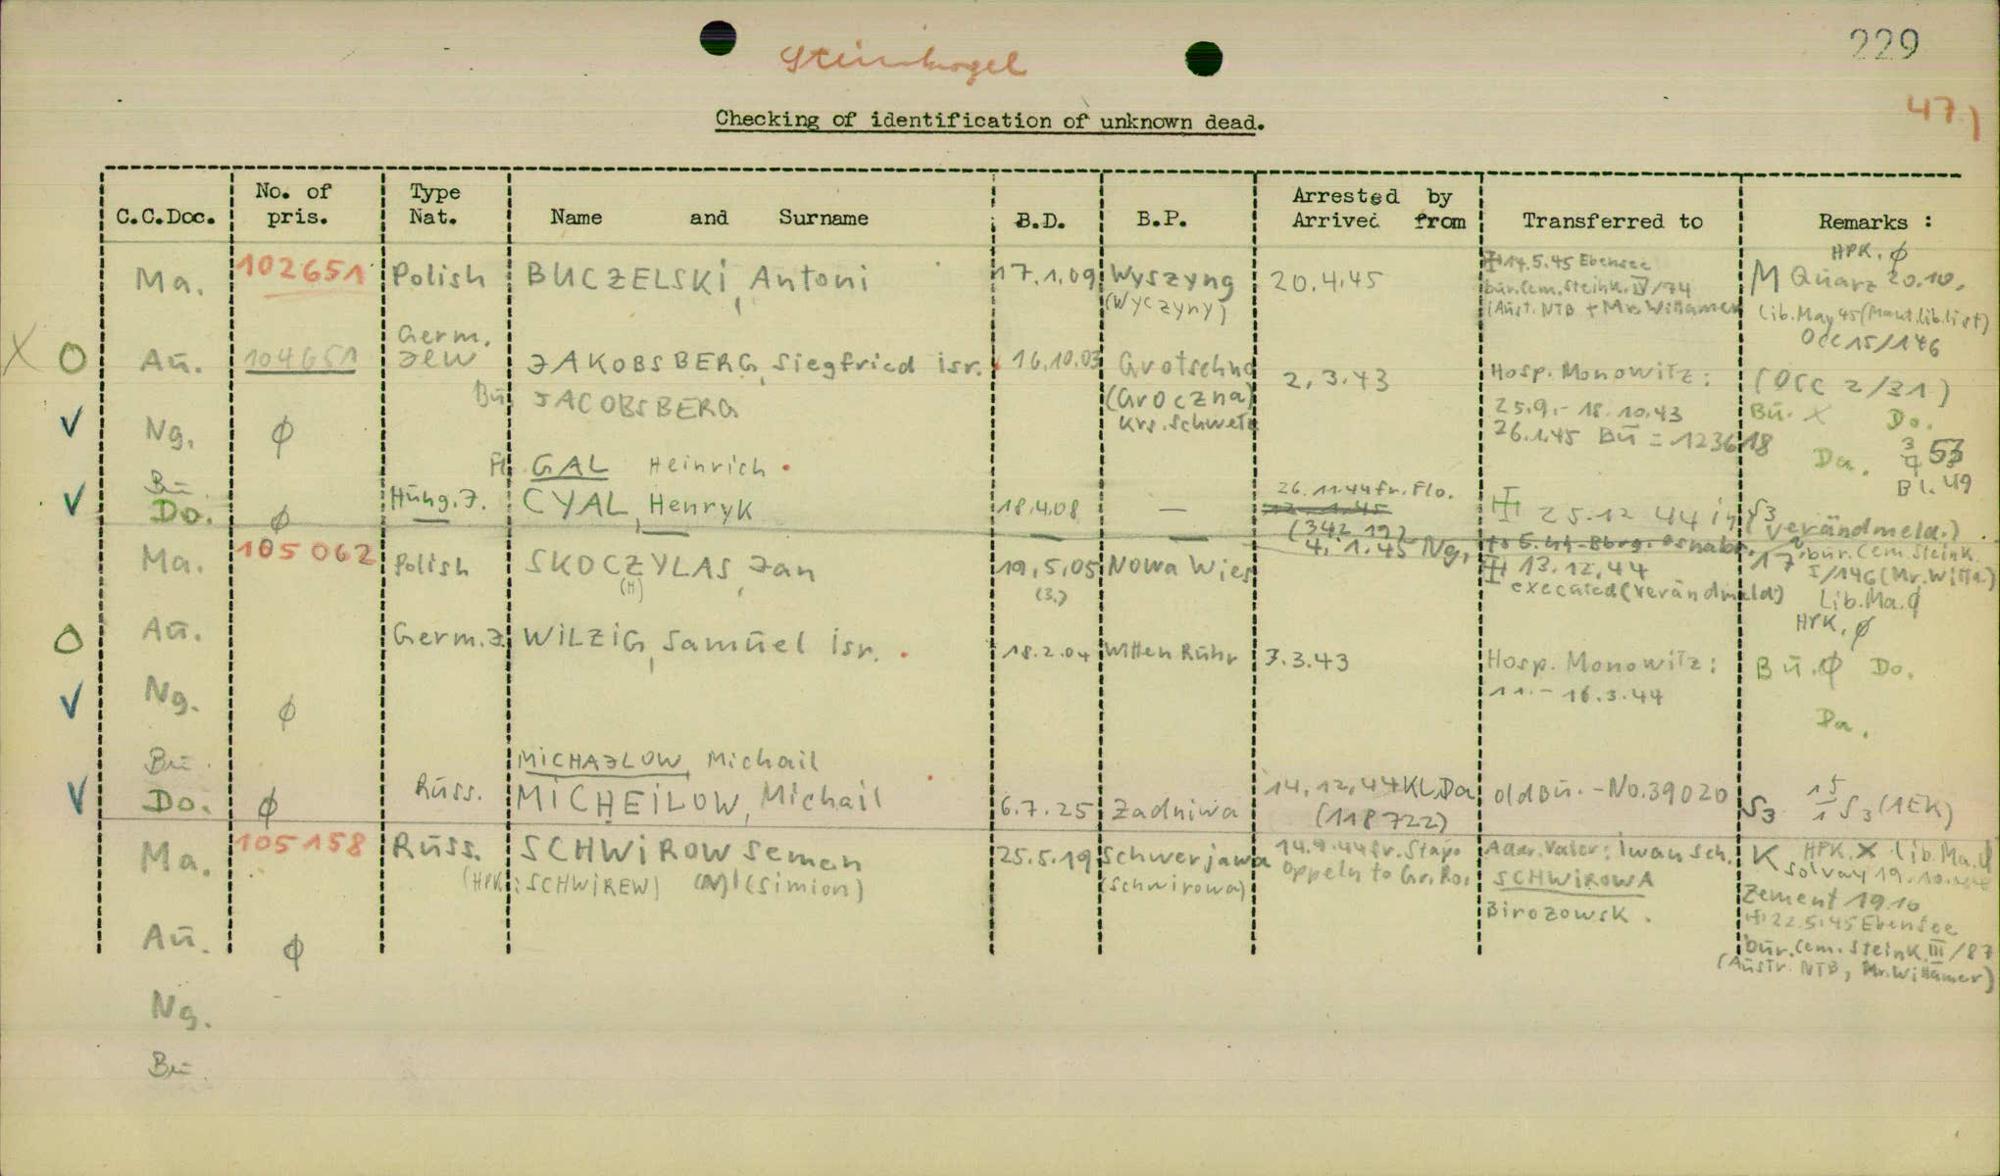 229
Steinkogel
47)
Checking of identification of unknown dead.
C.C.Doc. No. of pris. Type Nat. Name and Surname B.D. B.P. Arrested by Arrived from Transferred to Remarks :
Ma. 102651 Polish BUCZELSKI, Antoni 17.1.09 Wyszyng (Wyczyny) 20.4.45
14.5.45 Ebensee
bür.Cem.Steink. IV/74
(Aust. NTB + Mr. Willamer
HPK. ø
M Quarz 20.10.
Lib.May 45 (Maut.lib.list)
Occ 15/146
X O Au. 104651 Germ. Jew JAKOBSBERG, Siegfried Isr. 16.10.03 Grotschno (Groczna) Krs. Schwetz 2.3.43
Bu JACOBSBERG
Hosp. Monowitz:
25.9.- 18.10.43
26.1.45 Bu = 123618
(Occ 2/31)
Bu. X Do.
Da. 3/4 53
Bl. 49
V Ng. ø
Bu
Fl. GAL Heinrich
V Do. ø Hung.J. CYAL, Henryk 18.4.08 — 26.11.44 fr. Flo.
(342 19)
25.12 44 in S3
(verändmeld.)
Ma. 105 062 Polish SKOCZYLAS, Jan 19.5.05 Nowa Wies 4.1.45 Ng.
(H) (3.)
13.12.44
executed (verändmeld)
17 bür.Cem.Steink.
I/146 (Mr. Willa.)
Lib.Ma.ø
HPK. ø
O Au. Germ.J. WILZIG, Samuel Isr. 18.2.04 Witten Ruhr 7.3.43
Hosp. Monowitz:
11.- 16.3.44
Bu.ø Do.
Da.
V Ng. ø
Bu.
MICHAJLOW, Michail
V Do. ø Russ. MICHEILOW, Michail 6.7.25 Zadniwa 14.12.44 KL.Da (118722) old Bu. - No.39020 S3 15/1 S3 (1EK)
Ma. 105158 Russ. SCHWIROW Semen 25.5.19 Schwerjawa
(HPK: SCHWIREW) (N) (Simion) (Schwirowa)
14.9.44 fr. Stapo
Oppeln to Gr.Ro.
Addr. Vater: Iwan Sch.
SCHWIROWA
Birozowsk.
K HPK. X Lib.Ma.ø
Solvay 19.10.
Zement 19.10
22.5.45 Ebensee
bür.Cem.Steink. III/87
(Austr. NTB, Mr. Willamer)
Au. ø
Ng.
Bu.